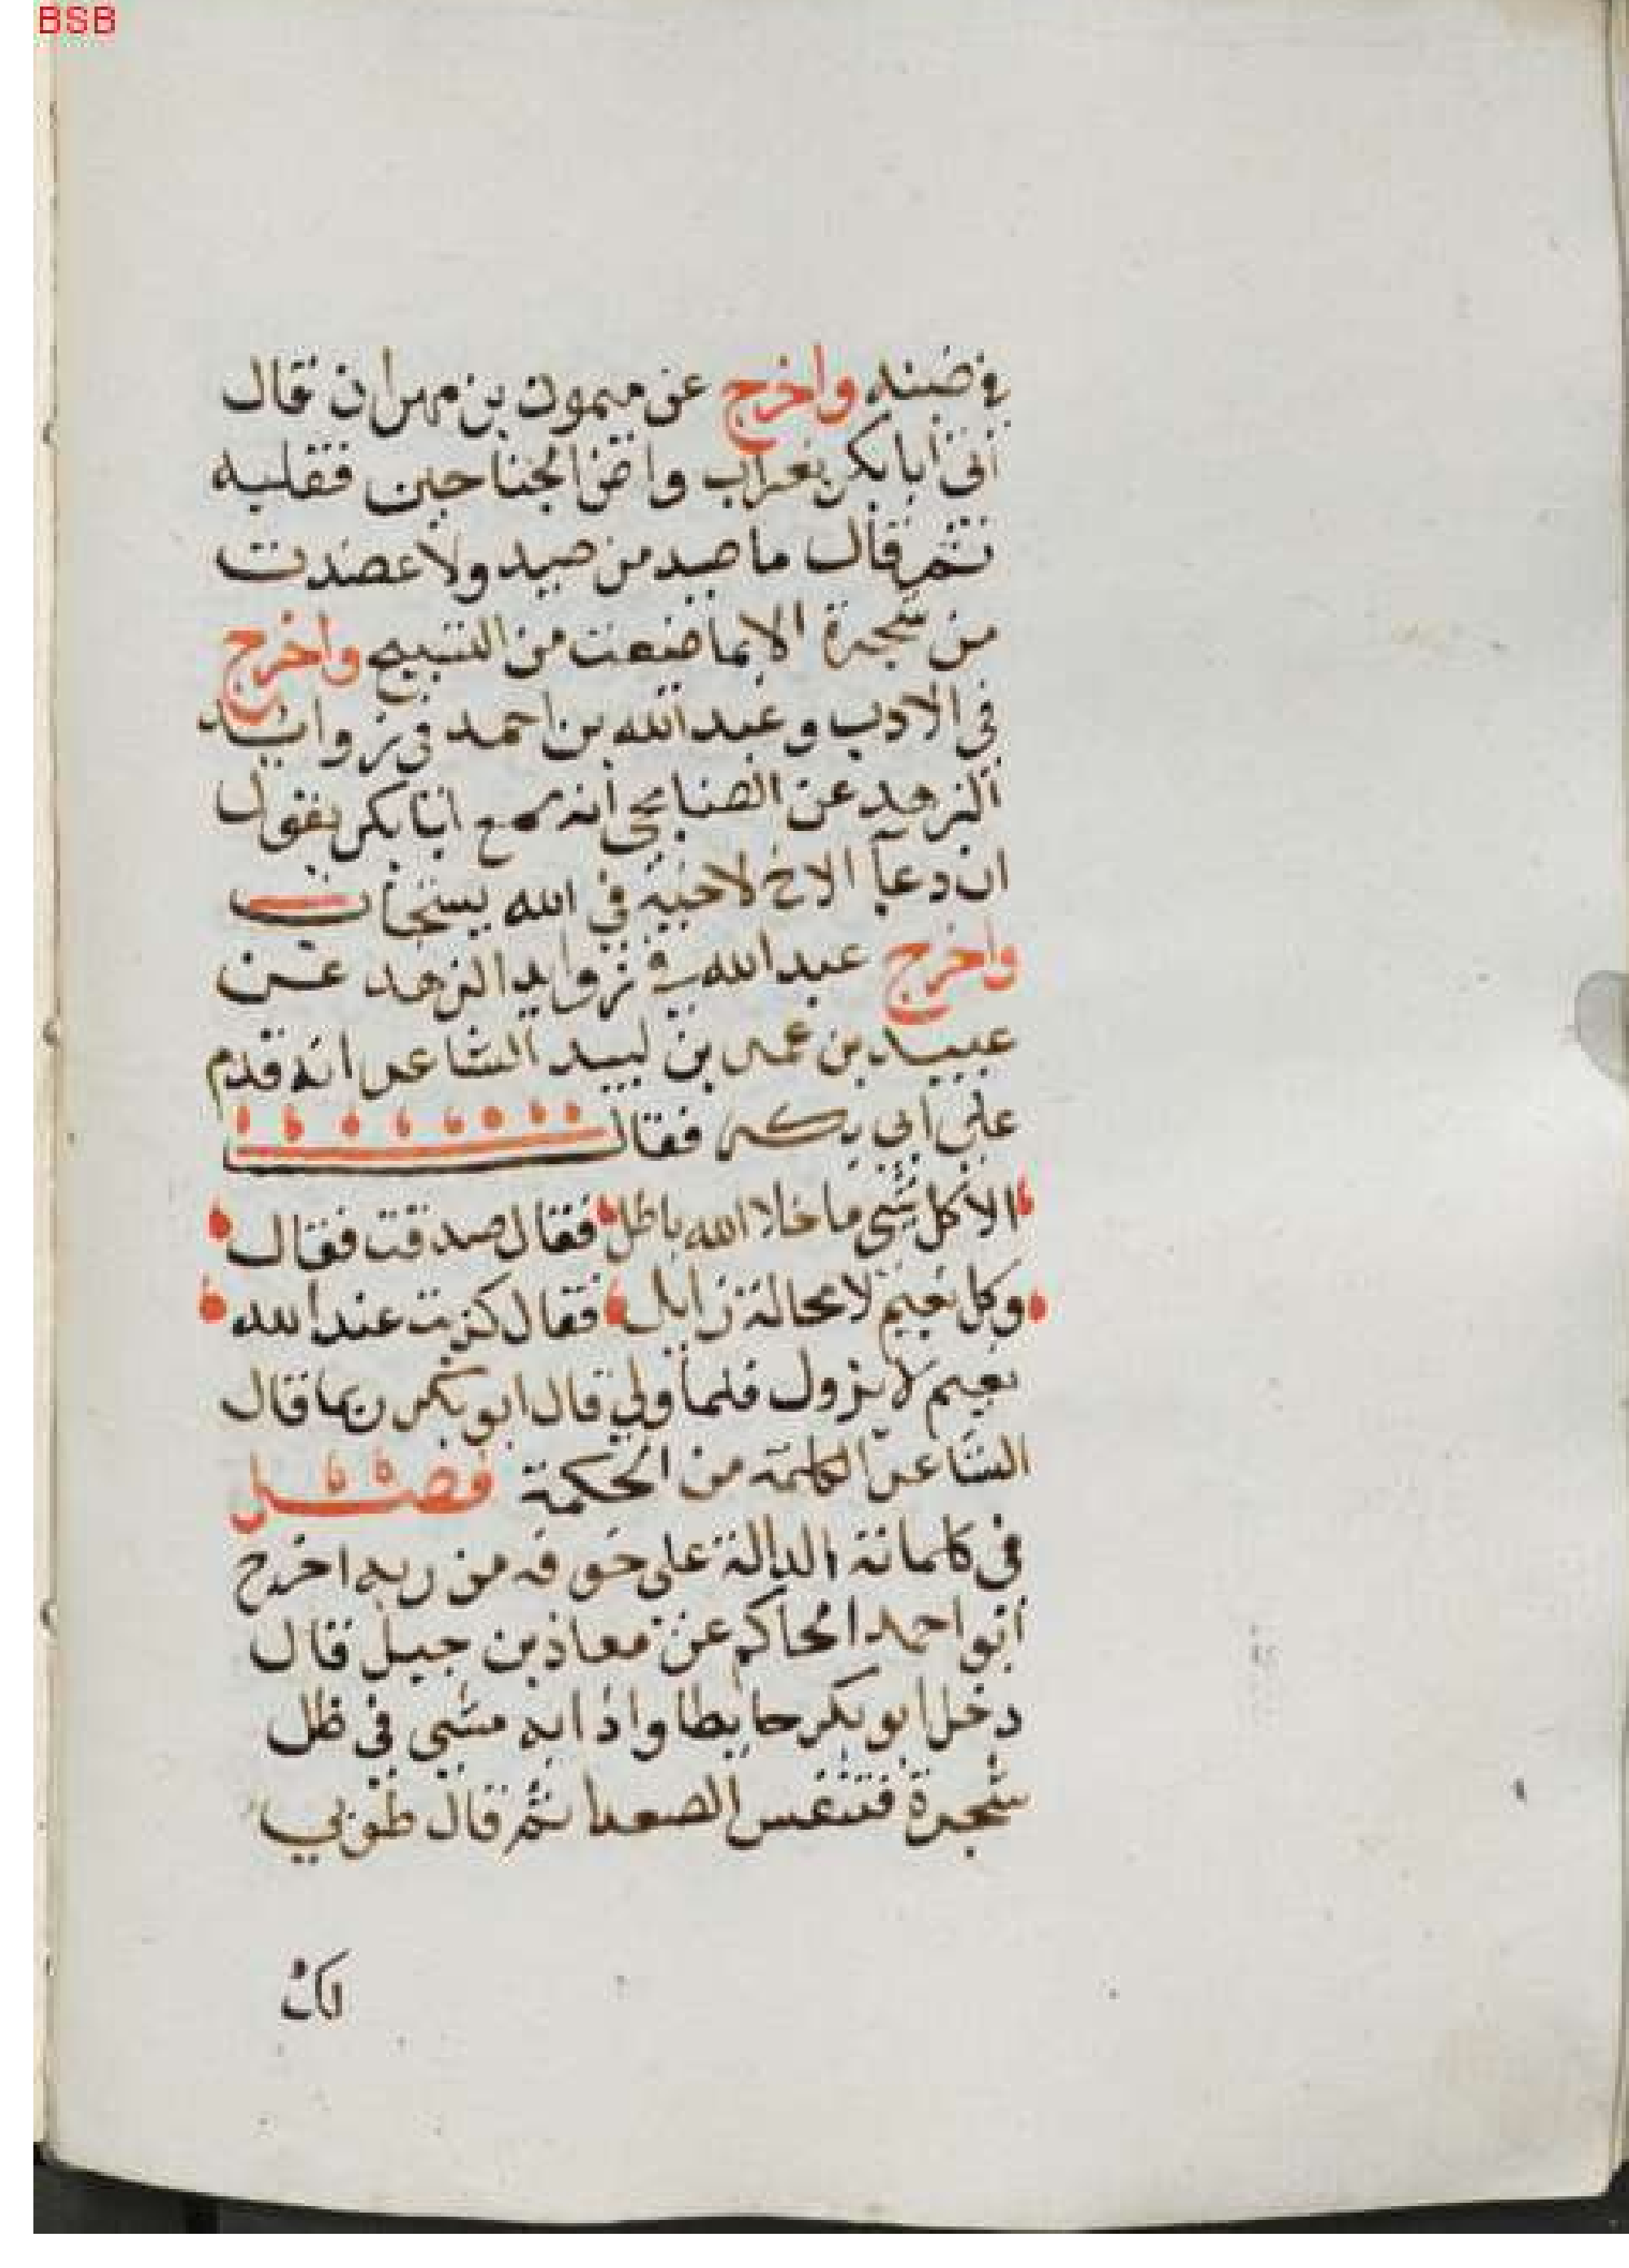 BSB
في ضبنه واخرج عن ميمون بن مهران قال
اتى ابا بكر بغراب وافر الجناحين فقلبه
ثم قال ما صيد من صيد ولا عضدت
من شجرة الا بما ضيعت من التسبيح واخرج
في الادب وعبد الله بن احمد في زوايد
الزهد عن الصنابحي انه سمع ابا بكر يقول
ان دعآ الاخ لاخيه في الله يستجاب
واخرج عبد الله في زوايد الزهد عن
عبيد بن عمر بن لبيد الشاعر انه قدم
على ابي بكر فقال
الا كل شي ما خلا الله باطل فقال صدقت فقال
وكل نعيم لا محالة زايل فقال كذبت عند الله
نعيم لا يزول فلما ولى قال ابو بكر ربما قال
الشاعر الكلمة من الحكمة فصل
في كلماته الدالة على خوفه من ربه اخرج
ابو احمد الحاكم عن معاذ بن جبل قال
دخل ابو بكر حايطا واذا به مشى في ظل
شجرة فتنفس الصعدا ثم قال طوبي
لك